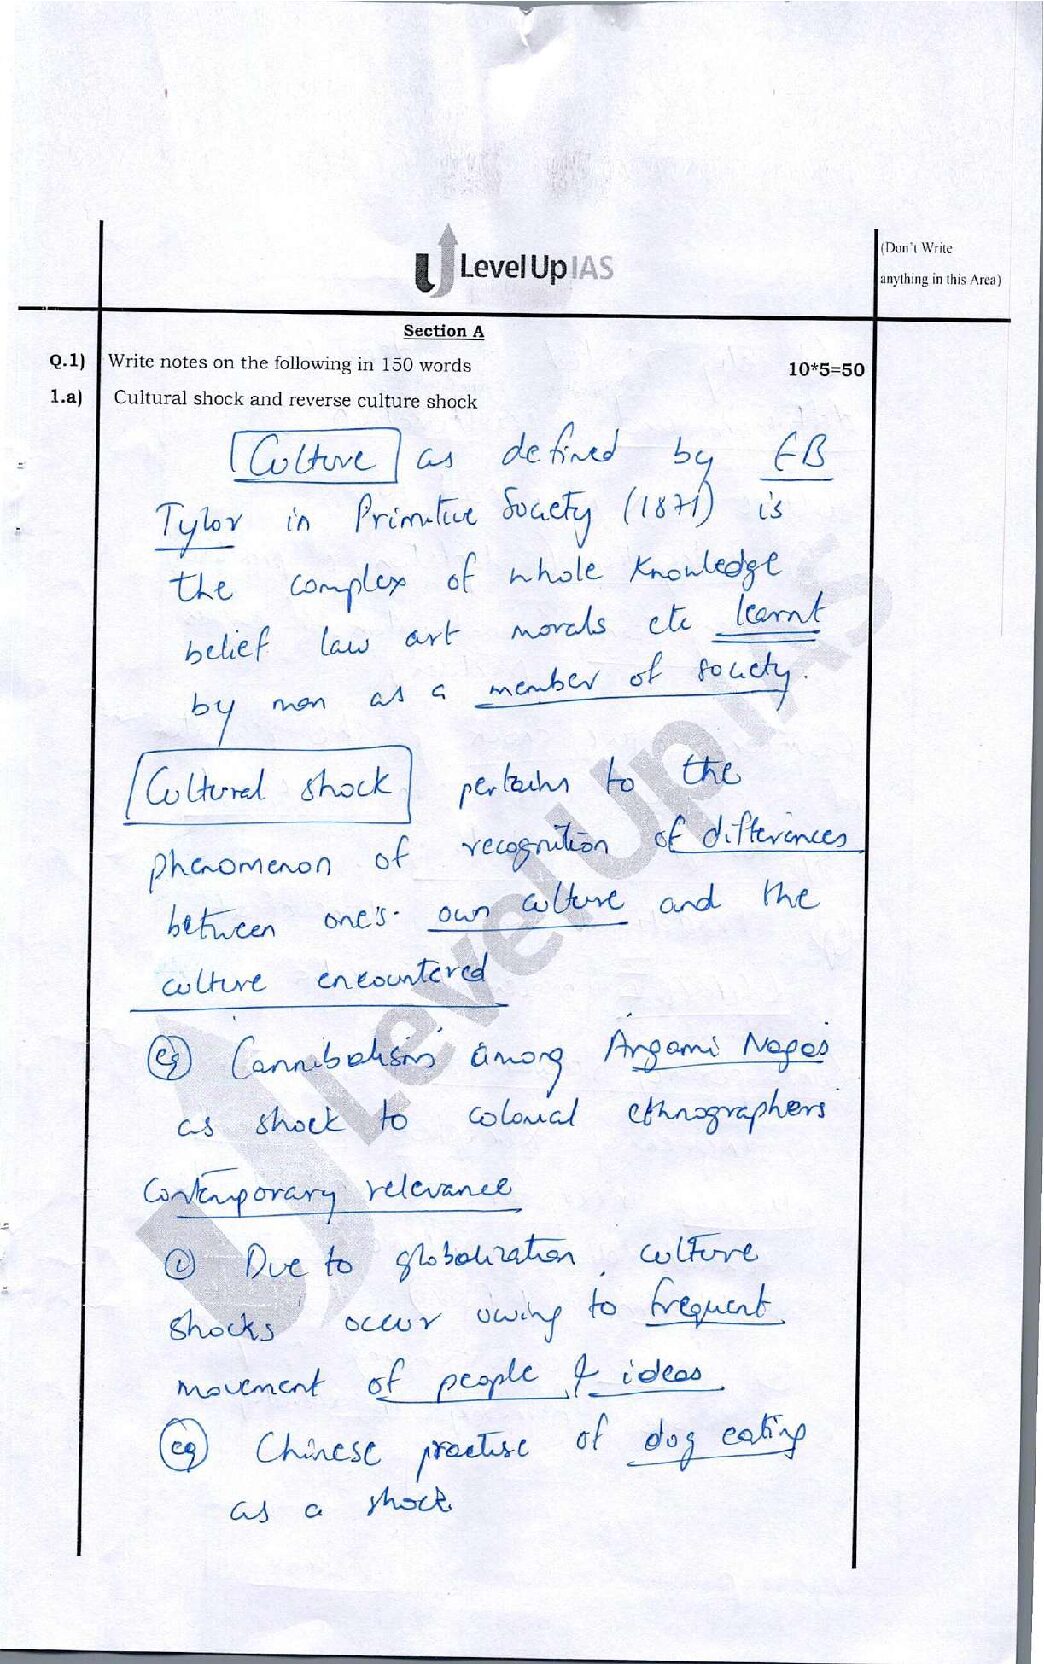 Level Up IAS
(Don't Write
anything in this Area)
Section A
Q.1) Write notes on the following in 150 words 10*5=50
1.a) Cultural shock and reverse culture shock
Culture as defined by EB
Tylor in Primitive Society (1871) is
the complex of whole knowledge
belief law art morals etc learnt
by man as a member of society.
Cultural shock pertains to the
phenomenon of recognition of differences
between one's own culture and the
culture encountered
eg Cannibalism among Angami Nagas
as shock to colonial ethnographers
Contemporary relevance
① Due to globalization, culture
shocks occur owing to frequent
movement of people & ideas
eg Chinese practise of dog eating
as a shock
Level Up IAS